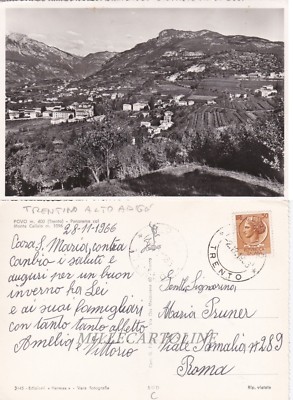 POVO m. 400 (Trento) - Panorama col
Monte Calisio m. 1096
TRENTINO ALTO ADIGE
28-11-1966
Cara S. Maria, contra
cambio i saluti e
auguri per un buon
inverno ha Lei
e ai suoi famigliari
con tanto tanto affetto
Amelia e
Vittorio
TRENTO
Gentl. Signorina,
Maria Pruner
Viale Somalia, n° 289
Roma
MILLECARTOLINE
Vera fotografia
Rip. vietata
C